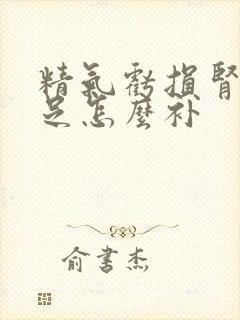 精氣虧損腎
足怎麼补
俞書杰